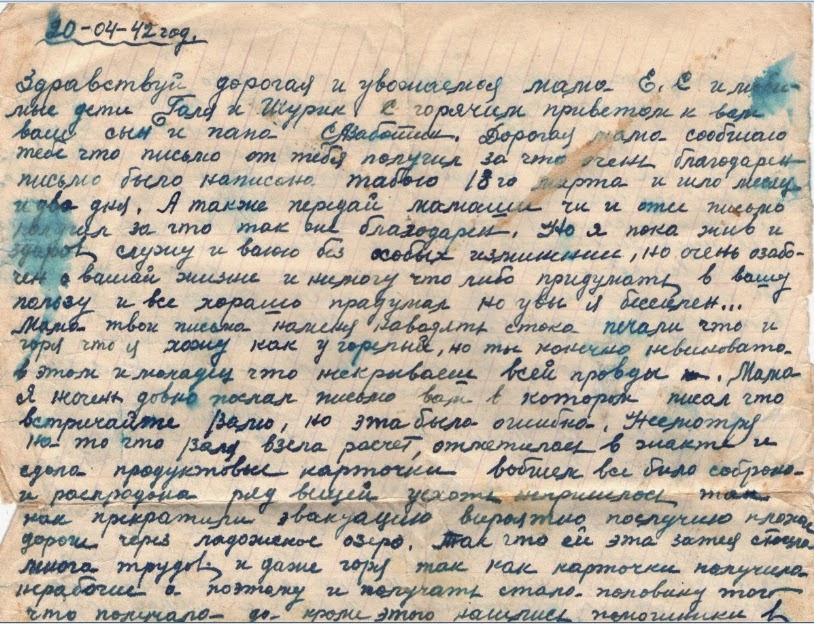 20-04-42 год.
Здравствуй дорогая и уважаемая мама Е. С и люби-
мые дети Галя и Шурик. С горячим приветом к вам
ваш сын и папа Дорогая мама сообщаю
тебе что письмо от тебя получил за что очень благодарен
письмо было написано табою 18го марта и шло месяц
и два дня. А также передай мамаши чи и отсе письмо
получил за что так же благодарен. Но я пока жив и
здаров служу и ваюю без особых изминений, но очень озабо-
чен о вашай жизне и нимогу что либо придумать в вашу
пользу и все харашо прадумал но увы я бесилен...
Мама твои письма наменя навадять стока печали что и
горя что я хожу как угорелый, но ты конечно невиновата-
в этом и маладец что нескриваеш всей правды. Мама
Я ночень довно послал письмо вам в котором писал что
встричайте Валю, но эта была ошибка. Несмотря
на то что Валя взела расчет, отметилась в жакте и
сдола продуктовые карточки вобшем все было соброно-
и распродона ряд вещей уехать непришлось так
как прекратили эвакуацию вироятно послучию плохой
дороги через ладожское озеро. Так что ей эта затея стоила
многа трудов и даже горя так как карточки получила
нерабочие а поэтому и получать стало половину того
что получала до- кроме этого нашлись помошники в